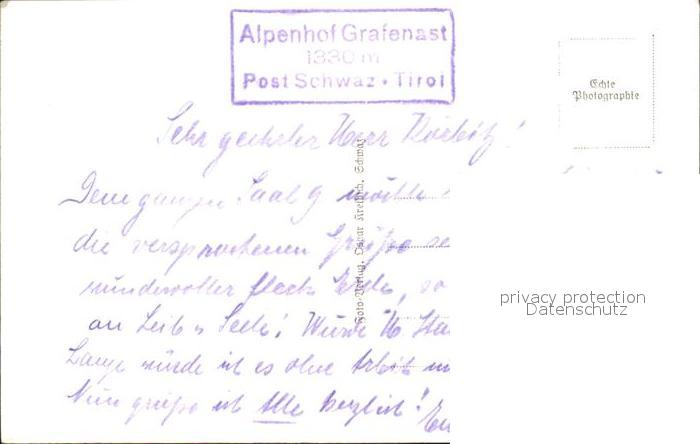 Alpenhof Grafenast
1330 m
Post Schwaz • Tirol
Echte
Photographie
Sehr geehrter Herr
Dem ganzen Saal 9 möchte
die versprochenen Grüße se
wundervoller Fleck Erde, so
an Leib u Seele! Würde
Lange würde ich es ohne Arbeit
Nun grüße ich Alle herzlich!
Foto-Verlag, Oscar Schwaz
privacy protection
Datenschutz